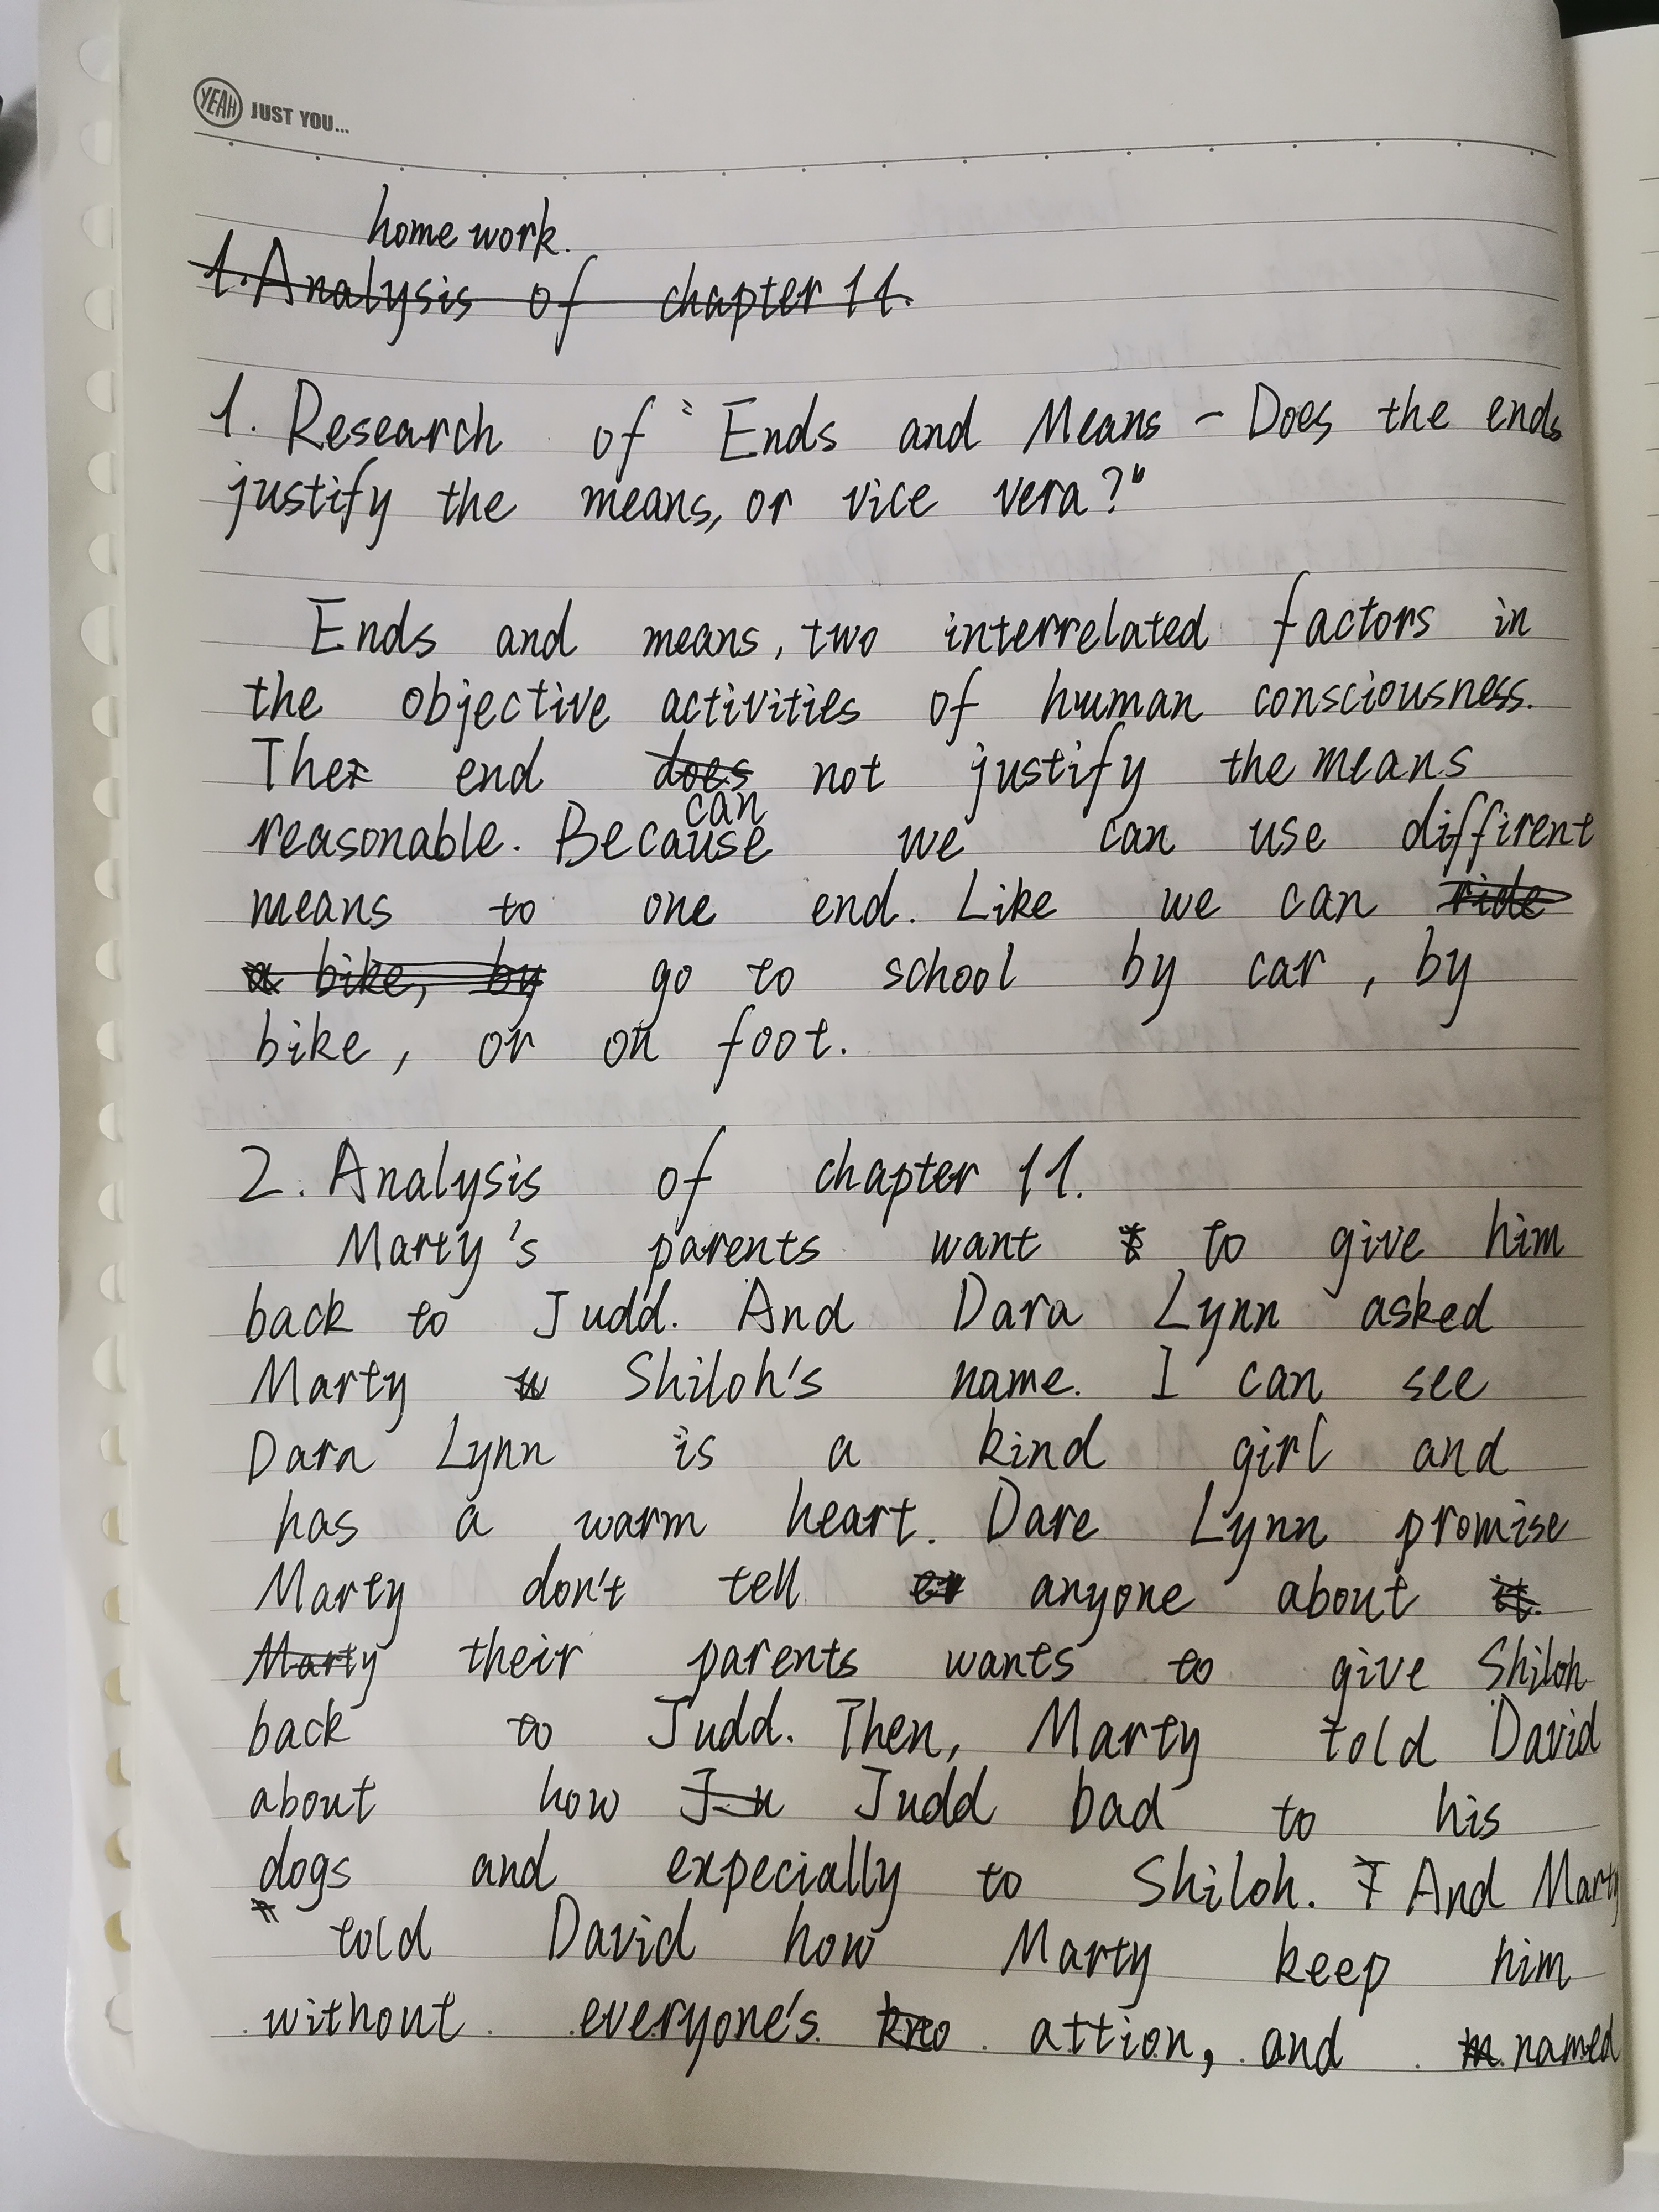 YEAH JUST YOU...
home work.
1. Analysis of chapter 11.
1. Research of "Ends and Means - Does the ends
justify the means, or vice vera?"
Ends and means, two interrelated factors in
the objective activities of human consciousness.
The end does not justify the means
can
reasonable. Because we can use diffirent
means to one end. Like we can ride
a bike, by go to school by car, by
bike, or on foot.
2. Analysis of chapter 11.
Marty's parents want to give him
back to Judd. And Dara Lynn asked
Marty Shiloh's name. I can see
Dara Lynn is a kind girl and
has a warm heart. Dare Lynn promise
Marty don't tell anyone about it.
Marty their parents wants to give Shiloh
back to Judd. Then, Marty told David
about how Ju Judd bad to his
dogs and expecially to Shiloh. And Marty
told David how Marty keep him
without everyone's kno attion, and named